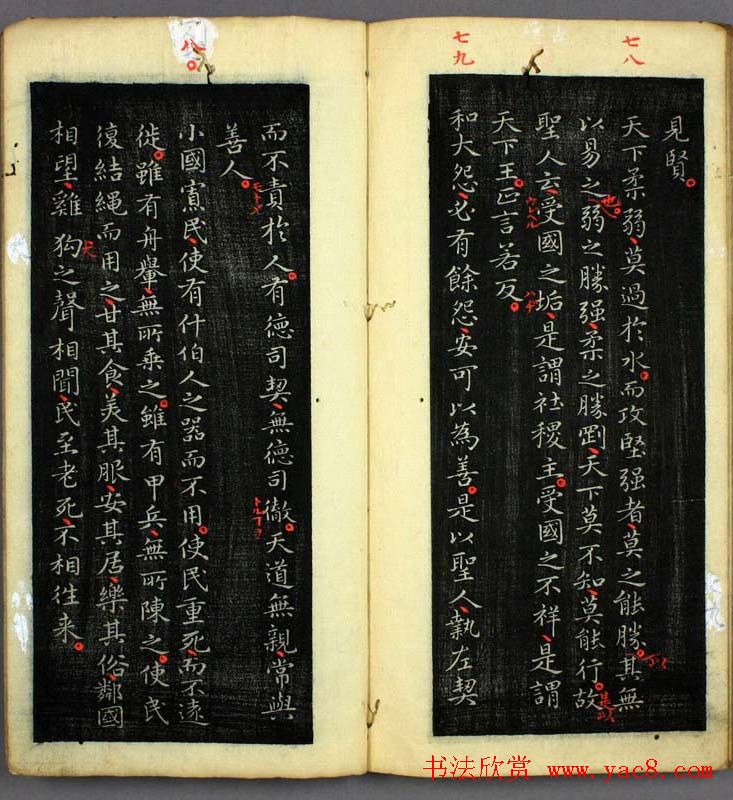 七八
七九
八。
見賢。
天下柔弱、莫過於水。而攻堅强者、莫之能勝。其無
以
以易之。弱之勝强、柔之勝剛、天下莫不知、莫能行。故
也。
是以
聖人云、受國之垢、是謂社稷主。受國之不祥、是謂
ハチ
天下王。正言若反。
和大怨、必有餘怨、安可以為善。是以聖人、執左契
而不責於人。有德司契、無德司徹。天道無親、常與
善人。
モトメ
小國寡民、使有什伯人之器而不用。使民重死、而不遠
徙。雖有舟轝、無所乘之。雖有甲兵、無所陳之。使民
復結繩而用之、甘其食、美其服、安其居、樂其俗、鄰國
相望、雞狗之聲相聞、民至老死、不相徃来。
犬
书法欣赏 www.yac8.com